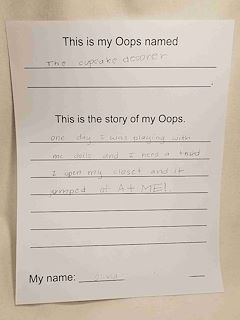 This is my Oops named
The cupcake desorer
This is the story of my Oops.
one day I was playing with
me dolls and I need a
I open my closet and it
jumped at At ME!.
My name: Olivia